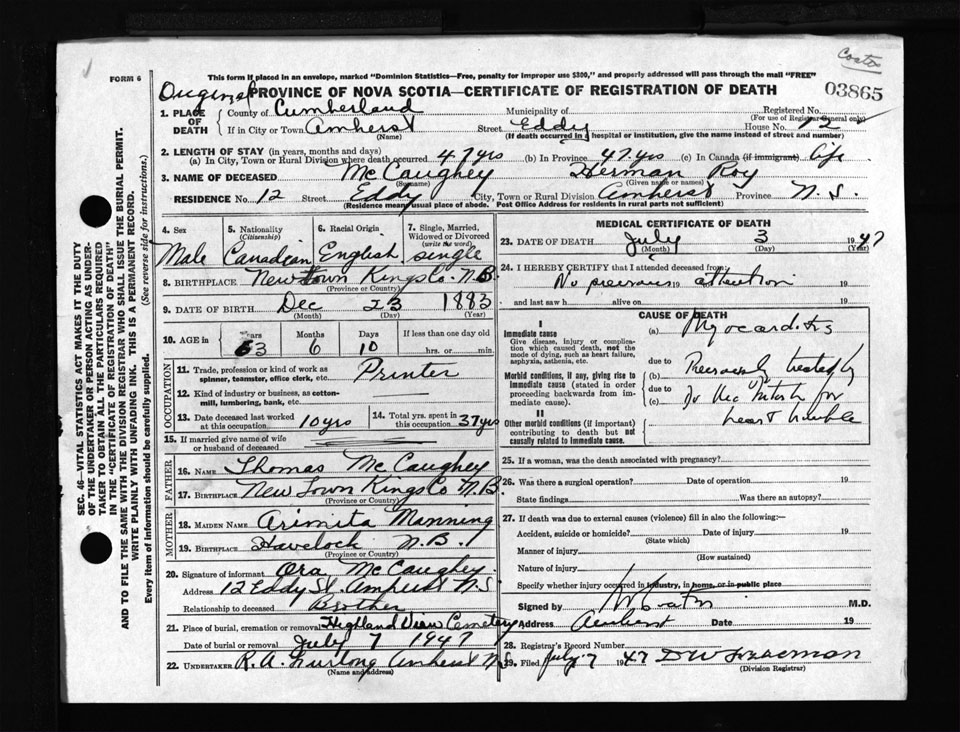 Coates
FORM 6
This form if placed in an envelope, marked "Dominion Statistics—Free, penalty for improper use $300," and properly addressed will pass through the mail "FREE"
Original
PROVINCE OF NOVA SCOTIA—CERTIFICATE OF REGISTRATION OF DEATH
03865
1. PLACE OF DEATH
County of Cumberland Municipality of Registered No.
(For use of Registrar General only)
If in City or Town Amherst Street Eddy House No. 12
(Name) (If death occurred in a hospital or institution, give the name instead of street and number)
2. LENGTH OF STAY (in years, months and days)
(a) In City, Town or Rural Division where death occurred 47 yrs (b) In Province 47 yrs (c) In Canada (if immigrant) life
3. NAME OF DECEASED McCaughey Herman Roy
(Surname) (Given name or names)
RESIDENCE No. 12 Street Eddy City, Town or Rural Division Amherst Province N.S.
(Residence means usual place of abode. Post Office Address for residents in rural parts not sufficient)
4. Sex Male
5. Nationality (Citizenship) Canadian
6. Racial Origin English
7. Single, Married, Widowed or Divorced (write the word) single
8. BIRTHPLACE New Town Kings Co. N.B.
(Province or Country)
9. DATE OF BIRTH Dec 23 1883
(Month) (Day) (Year)
10. AGE in Years Months Days If less than one day old
63 6 10 hrs. or min.
OCCUPATION
11. Trade, profession or kind of work as spinner, teamster, office clerk, etc. Printer
12. Kind of industry or business, as cotton-mill, lumbering, bank, etc.
13. Date deceased last worked at this occupation 10 yrs
14. Total yrs. spent in this occupation 37 yrs
15. If married give name of wife or husband of deceased
FATHER
16. NAME Thomas McCaughey
17. BIRTHPLACE New Town Kings Co N.B.
(Province or Country)
MOTHER
18. MAIDEN NAME Arimita Manning
19. BIRTHPLACE Havelock N.B.
(Province or Country)
20. Signature of informant Ora McCaughey
Address 12 Eddy St. Amherst N.S
Relationship to deceased Brother
21. Place of burial, cremation or removal Highland View Cemetery
Date of burial or removal July 7 1947
22. UNDERTAKER R. A. Furlong Amherst N.S.
(Name and address)
MEDICAL CERTIFICATE OF DEATH
23. DATE OF DEATH July 3 1947
(Month) (Day) (Year)
24. I HEREBY CERTIFY that I attended deceased from
No previous 19 attention 19
and last saw h alive on 19
CAUSE OF DEATH
I
Immediate cause
Give disease, injury or complication which caused death, not the mode of dying, such as heart failure, asphyxia, asthenia, etc.
(a) Myocarditis
due to
Morbid conditions, if any, giving rise to immediate cause (stated in order proceeding backwards from immediate cause).
(b) Previously treated by
due to
(c) Dr McIntosh for
heart trouble
II
Other morbid conditions (if important) contributing to death but not causally related to immediate cause.
25. If a woman, was the death associated with pregnancy?
26. Was there a surgical operation? Date of operation 19
State findings Was there an autopsy?
27. If death was due to external causes (violence) fill in also the following:—
Accident, suicide or homicide? Date of injury 19
(State which)
Manner of injury
(How sustained)
Nature of injury
Specify whether injury occurred in industry, in home, or in public place
Signed by M.D.
Address Amherst Date 19
28. Registrar's Record Number
29. Filed July 7 1947
(Division Registrar)
SEC. 46—VITAL STATISTICS ACT MAKES IT THE DUTY
OF THE UNDERTAKER OR PERSON ACTING AS UNDER-
TAKER TO OBTAIN ALL THE PARTICULARS REQUIRED
IN THE "CERTIFICATE OF REGISTRATION OF DEATH"
AND TO FILE THE SAME WITH THE DIVISION REGISTRAR WHO SHALL ISSUE THE BURIAL PERMIT.
WRITE PLAINLY WITH UNFADING INK. THIS IS A PERMANENT RECORD.
Every item of information should be carefully supplied. (See reverse side for instructions.)